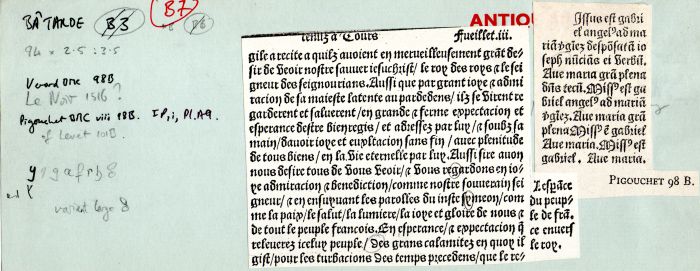 BÂTARDE B/3 B7
94 × 2·5 : 3·5
Verard DMC 98B
Le Noir 1516?
Pigouchet DMC viii 98B. IP, i, Pl. A9.
cf Levet 101B.
variant large
ANTIQU
tenuz a Tours Fueillet.iii.
gile a recite a quilz auoient en merueilleusement grãt de-
sir de Veoir nostre sauueur iesuchrist/ le roy des roys & le sei
gneur des seignourians. Aussi que par grant ioye & admi
racion de sa maieste latente au pardedens/ ilz se Virent re
garderent et saluerent/ en grande & ferme expectacion et
esperance destre bien regis/ et adressez par luy/ & soubz sa
main/ dauoir ioye et exultacion sans fin/ auec plenitude
de tous biens/ en la Vie eternelle par luy. Aussi sire auon
nous desire tous de Vous Veoir/ & Vous regardons en io-
ye admiracion & benediction/ comme nostre souuerain sei
gneur/ & en ensuyuant les parolles du iuste symeon/ com
me la paix/ le salut/ la lumiere/ la ioye et gloire de nous &
de tout le peuple francois. En esperance/ & expectacion q̃
releuerez icelluy peuple/ des grans calamitez en quoy il
gist/ pour les turbacions des temps precedens/ que le re-
Lesperãce
du peup-
le de frã-
ce enuers
le roy.
Issus est gabri
el angelꝰ ad ma
riã ꝟgiez despõsatã io
seph nũciãs ei verbũ.
Aue maria grã plena
dñs tecũ. Missꝰ est ga
briel angelꝰ ad mariã
ꝟgiez. Aue maria grã
plena Missꝰ ẽ gabriel
Aue maria. Missꝰ est
gabriel. Aue maria.
PIGOUCHET 98 B.